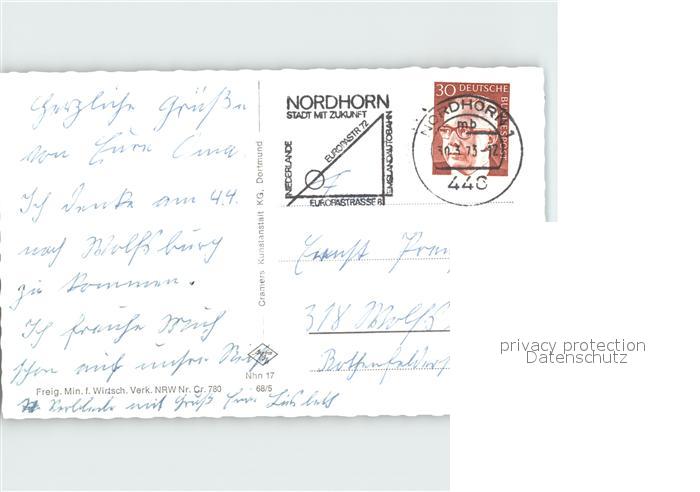 Herzliche Grüße
von Eure Oma.
Ich denke am 4.4.
nach Wolfsburg
zu kommen.
Ich freuhe Mich
schon auf
mit Gruß Eure
Freig. Min. f. Wirtsch. Verk. NRW Nr. Cr. 780
Nhn 17
68/5
Cramers Kunstanstalt KG, Dortmund
NORDHORN
STADT MIT ZUKUNFT
NIEDERLANDE
EUROPASTR 72
EMSLANDAUTOBAHN
EUROPASTRASSE 8
30 DEUTSCHE BUNDESPOST
NORDHORN 1
mb
30.3.73-12
446
Ernst
318 Wolfs
privacy protection
Datenschutz